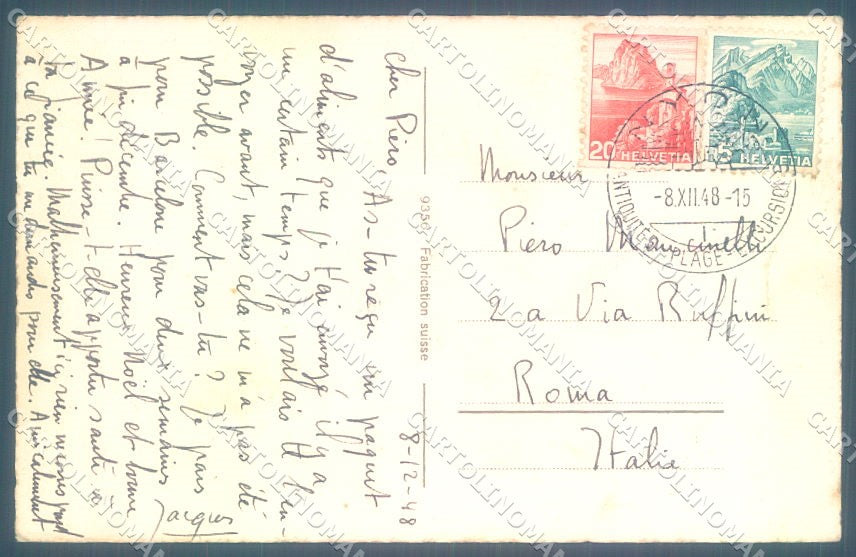 8-12-48
Cher Piero
As-tu reçu un paquet
d'aliments que je t'ai envoyé il y a
un certain temps? Je voulais te l'en-
voyer avant, mais cela ne m'a pas été
possible. Comment vas-tu? Je pars
pour Barcelone pour deux semaines
à fin décembre. Heureux Noël et bonne
Année! Puisse-t-elle apporter santé à
ta fiancée. Malheureusement ici rien
à ce que tu me demandes pour elle. Amicalement
Jacques
9356 Fabrication suisse
20 HELVETIA
5 HELVETIA
-8.XII.48-15
ANTIQUITES PLAGE EXCURSIONS
Monsieur
Piero Mancinelli
2a Via Ruffini
Roma
Italie
CARTOLINOMANIA